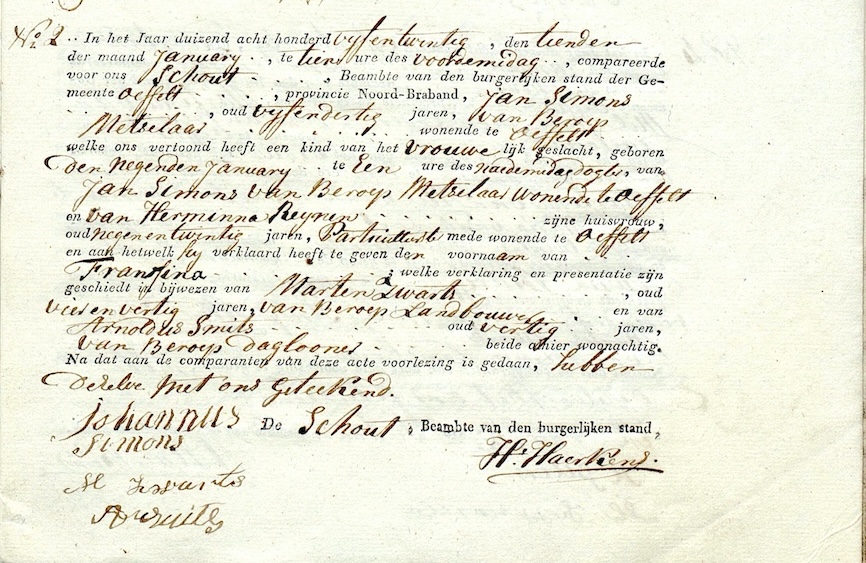 No 2 .. In het Jaar duizend acht honderd vyfentwintig , den tienden
der maand January .. , te tien ure des voordemidag .. , compareerde
voor ons Schout . . . , Beambte van den burgerlijken stand der Ge-
meente Oeffelt . . , provincie Noord-Braband, Jan Simons
. . . . , oud vyfendertig jaren, van Beroep
Metselaar . . . . . . wonende te Oeffelt
welke ons vertoond heeft een kind van het vrouwe lijk geslacht, geboren
den negenden January . . te Een ure des naedemidag , van
Jan Simons van Beroep Metselaar wonende te Oeffelt
en van Hermina Reynen . . . . . . zijne huisvrouw,
oud negenentwintig jaren, mede wonende te Oeffelt
en aan hetwelk hy verklaard heeft te geven den voornaam van . .
Fransina . . . . . . ; welke verklaring en presentatie zijn
geschiedt in bijwezen van Marten Zwarts . . . . , oud
vierenvertig jaren, van Beroep Landbouwer . . . en van
Arnoldus Smits . . . . . . oud vertig . jaren,
van Beroep daglooner . . . . . beide alhier woonachtig.
Na dat aan de comparanten van deze acte voorlezing is gedaan, hebben
deselve met ons geteekend.
Johannus De Schout , Beambte van den burgerlijken stand,
Simons
Hs. Haerkens.
M Zwarts
A Smits